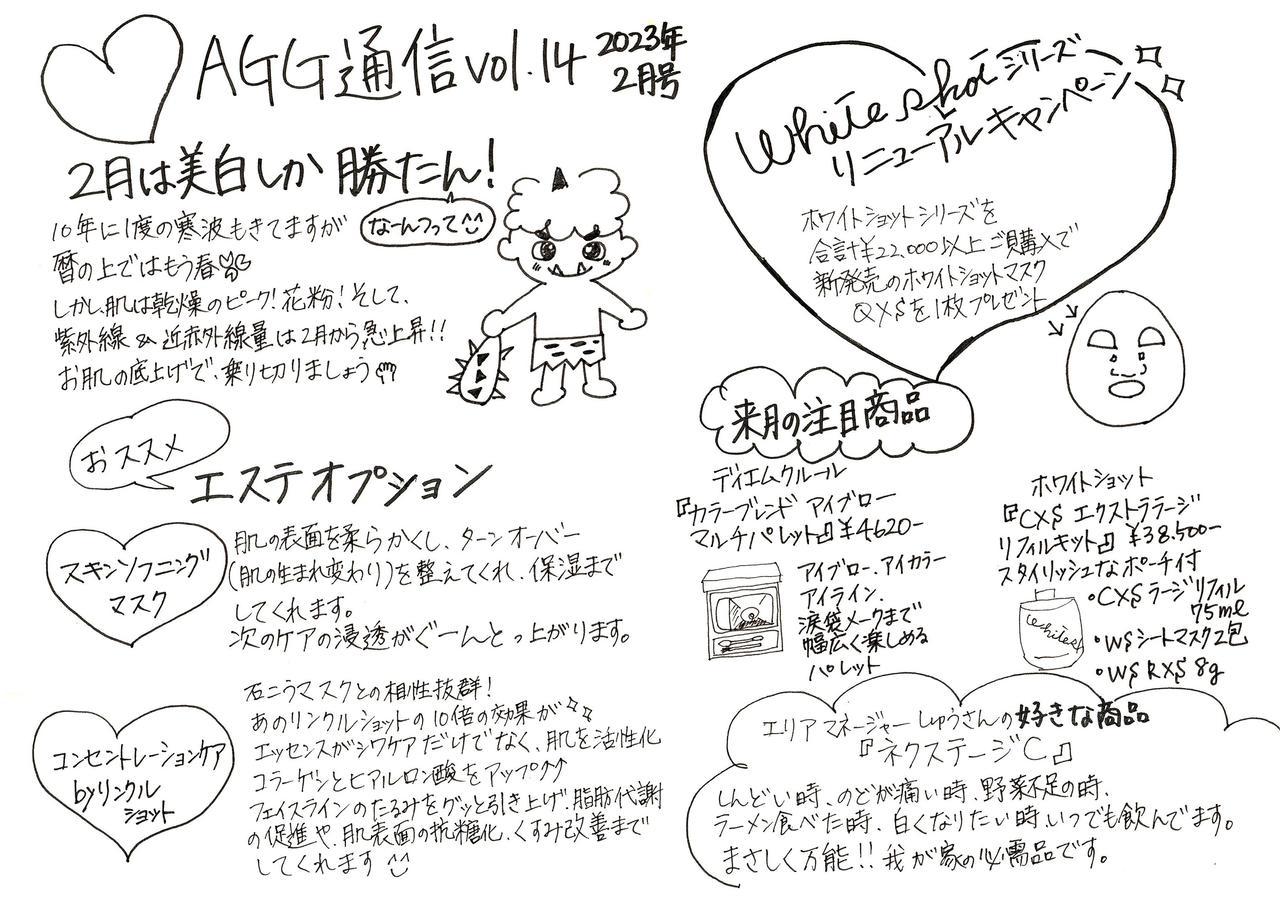 AGG通信vol.14 2023年
2月号
2月は美白しか勝たん!
なーんつって
10年に1度の寒波もきてますが
暦の上ではもう春
しかし、肌は乾燥のピーク!花粉!そして、
紫外線&近赤外線量は2月から急上昇!!
お肌の底上げで、乗り切りましょう
おススメ
エステオプション
スキンソフニング
マスク
肌の表面を柔らかくし、ターンオーバー
(肌の生まれ変わり)を整えてくれ、保湿まで
してくれます。
次のケアの浸透がぐーんとっ上がります。
コンセントレーションケア
byリンクル
ショット
石こうマスクとの相性抜群!
あのリンクルショットの10倍の効果が
エッセンスがシワケアだけでなく、肌を活性化
コラーゲンとヒアルロン酸をアップ↑↑
フェイスラインのたるみをグッと引き上げ、脂肪代謝
の促進や、肌表面の抗糖化、くすみ改善まで
してくれます
White shotシリーズ
リニューアルキャンペーン
ホワイトショットシリーズを
合計¥22,000以上ご購入で
新発売のホワイトショットマスク
QXSを1枚プレゼント
来月の注目商品
ディエムクルール
『カラーブレンド アイブロー
マルチパレット』¥4620-
アイブロー、アイカラー
アイライン、
涙袋メークまで
幅広く楽しめる
パレット
ホワイトショット
『CXS エクストララージ
リフィルキット』¥38,500-
スタイリッシュなポーチ付
•CXSラージリフィル
75ml
•WSシートマスク2包
•WS RXS 8g
エリアマネージャーしゅうさんの好きな商品
『ネクステージC』
しんどい時、のどが痛い時、野菜不足の時、
ラーメン食べた時、白くなりたい時、いつでも飲んでます。
まさしく万能!!我が家の必需品です。